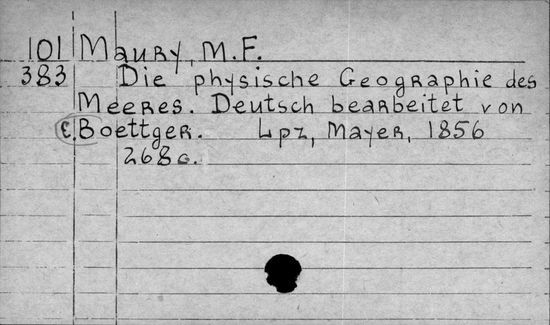 101 Maury, M.F.
383 Die physische Geographie des
Meeres. Deutsch bearbeitet von
C. Boettger. Lpz, Mayer, 1856
268 c.